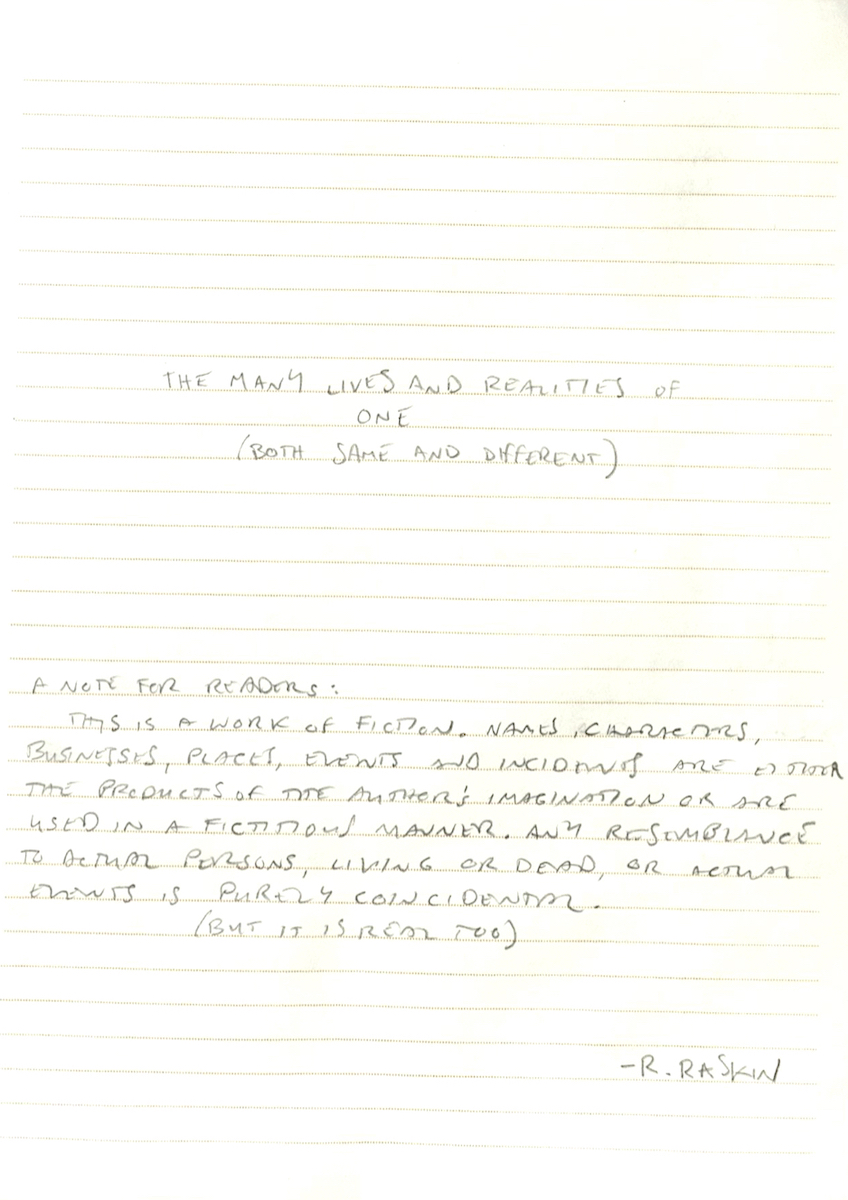 THE MANY LIVES AND REALITIES OF
ONE
(BOTH SAME AND DIFFERENT)
A NOTE FOR READERS:
THIS IS A WORK OF FICTION. NAMES, CHARACTERS,
BUSINESSES, PLACES, EVENTS AND INCIDENTS ARE EITHER
THE PRODUCTS OF THE AUTHER'S IMAGINATION OR ARE
USED IN A FICTITIOUS MANNER. ANY RESEMBLANCE
TO ACTUAL PERSONS, LIVING OR DEAD, OR ACTUAL
EVENTS IS PURELY COINCIDENTAL.
(BUT IT IS REAL TOO)
-R. RASKIN